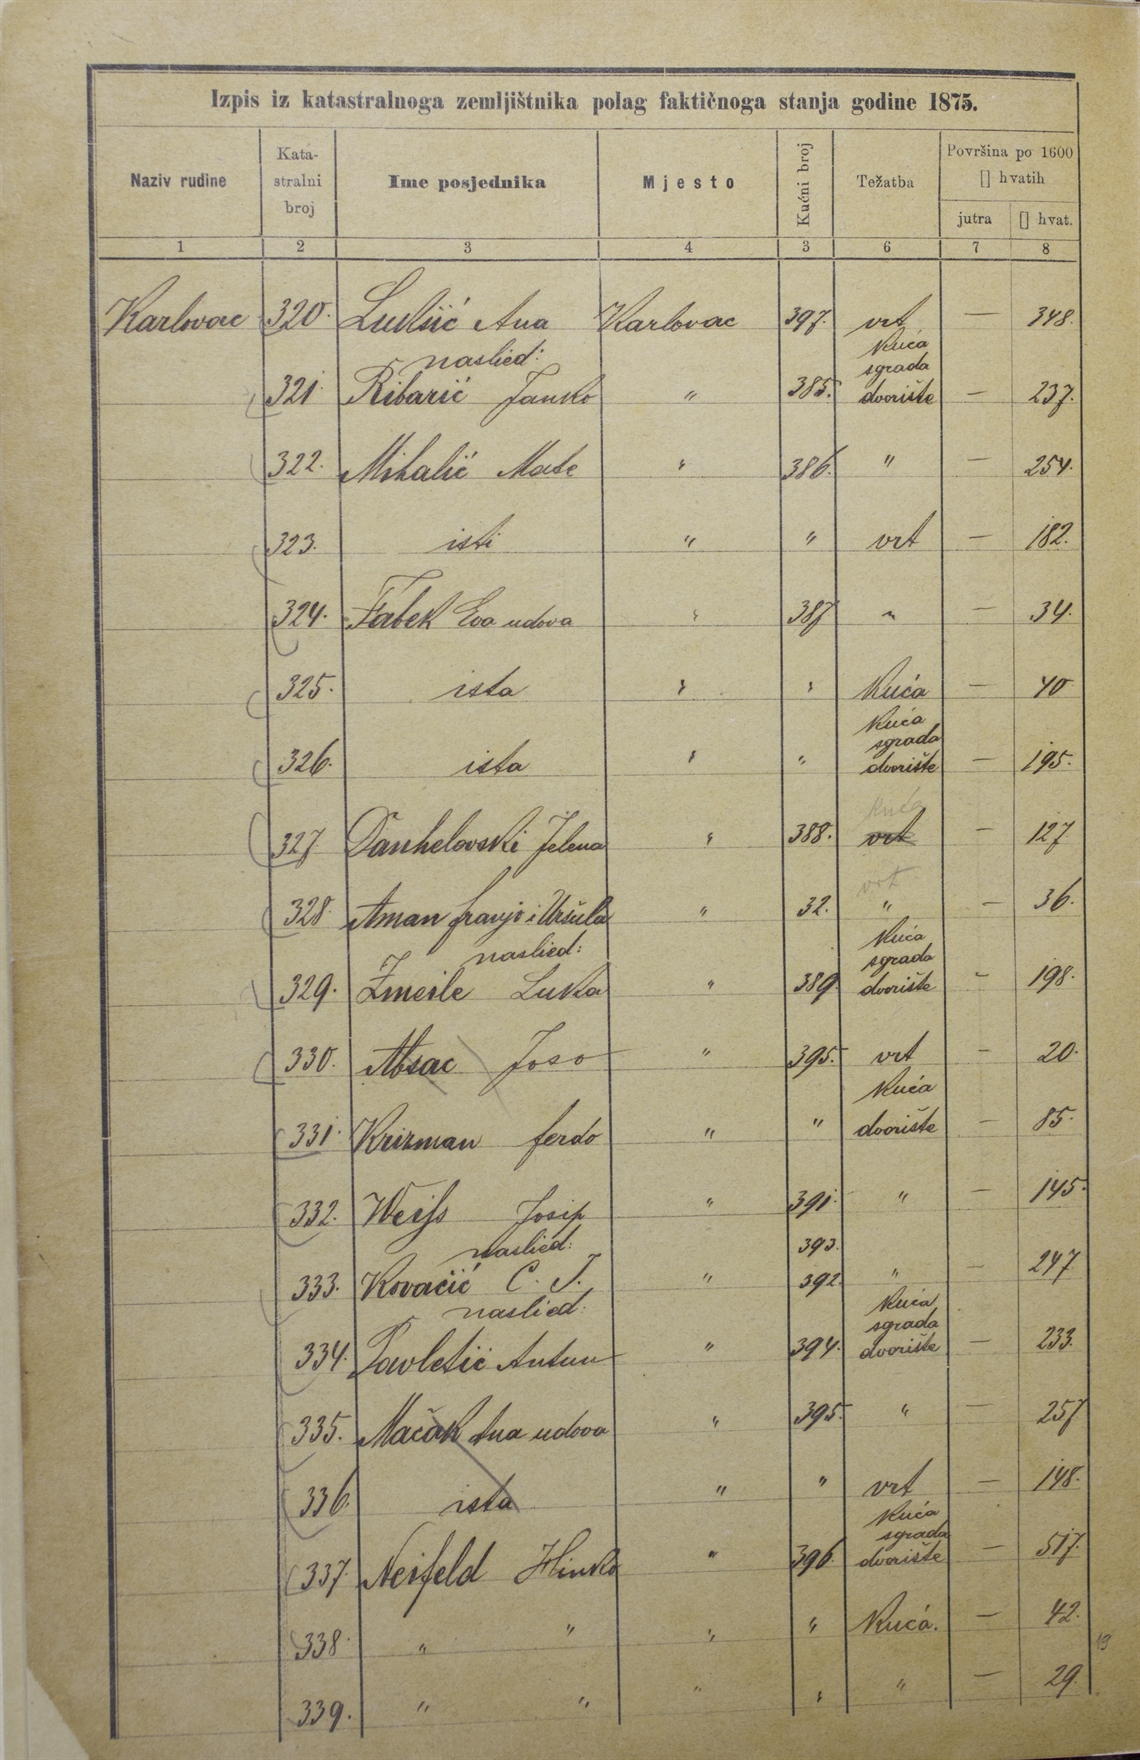 Izpis iz katastralnoga zemljištnika polag faktičnoga stanja godine 1875.
Naziv rudine Kata-stralni broj Ime posjednika Mjesto Kućni broj Težatba Površina po 1600 [] hvatih
jutra [] hvat.
1 2 3 4 3 6 7 8
Karlovac 320. Ana Karlovac 397. vrt — 348.
naslied: Kuća sgrada
321. Ribarić Janko " 385. dvorište — 237.
322. Mihalić Mate " 386. " — 254.
323. isti " " vrt — 182.
324. Fabek Eva udova " 387 " — 34.
325. ista " " Kuća — 40
Kuća sgrada
326. ista " " dvorište — 195.
kuća
327 Danhelovski Jelena " 388. vrt — 127
vrt
328. Aman franjo i Uršula " 32. " — 36.
naslied: Kuća sgrada
329. Luka " 389. dvorište — 198.
330. Joso " 395. vrt — 20.
Kuća
331. Krizman ferdo " " dvorište — 85.
332. Weifs Josip " 391. " — 145.
naslied: 393.
333. Kovačić C. J. " 392. " — 247
naslied: Kuća sgrada
334. Pavletić Antun " 394. dvorište — 233.
335. Mačak Ana udova " 395. " — 257
336. ista " " vrt — 148.
Kuća sgrada
337. Neifeld Hinko " 396. dvorište — 517.
338. " " " " Kuća. — 42.
339. " " " " " — 29.
19